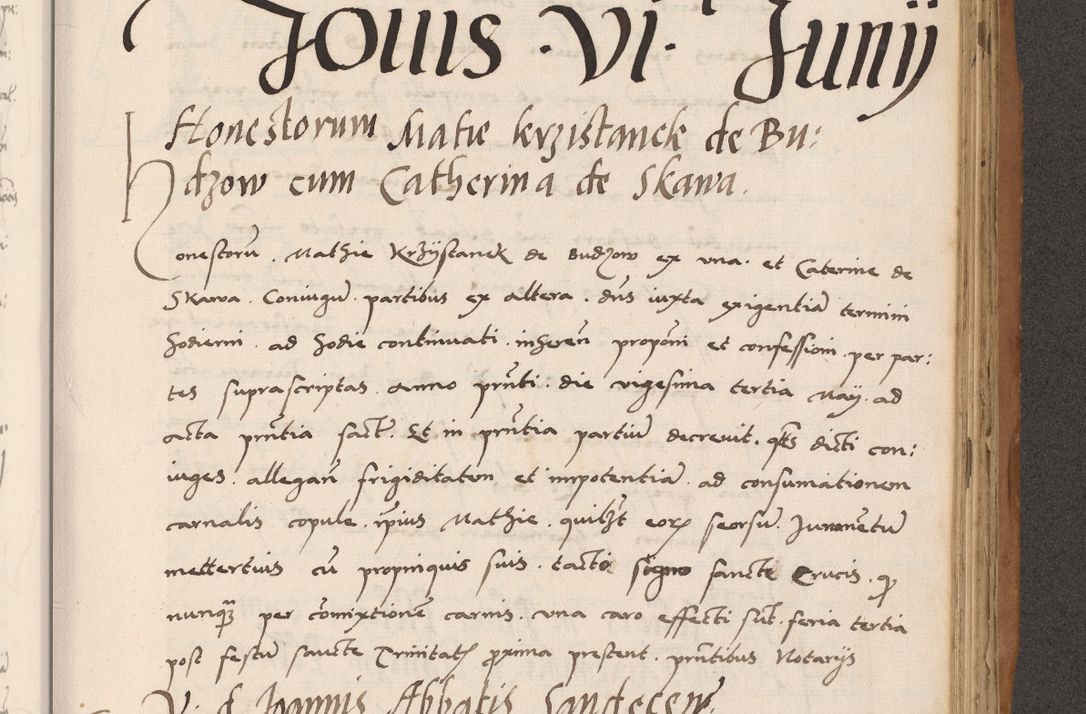 Iouis · Vi · Junij
Honestorum Matie krzistanek de Bu:
dzow cum Catherina de Skawa.
Honestoru̅. Mathie Krzÿstanek de Budzow ex vna. et Caterine de
Skawa. Coniugu̅. partibus ex altera. dn̅s iuxta exigentia̅ termini
hodierni. ad hodie continuati. inheren̅ propon̅i et confessioni. per par:
tes suprascriptas. anno prn̅ti. die vigesima tertia Maÿ. ad
acta prn̅tia fact̅. Et in prn̅tia partiu̅ decreuit. qt̅s dicti con:
iuges. allegan̅ frigiditatem et impotentia̅. ad consumationem
carnalis copule. ip̅ius Mathie. quilib̅t eorꝝ seorsu̅. Juramentu̅
mettertius cu̅ propinquis suis. tacto signo sancte Crucis. ꝙ
nunqꝫ per co̅mixtione̅ carnis. vna caro effecti su̅t. feria tertia
post festu̅ sancte Trinitatꝭ ꝓxima prestent. prn̅tibus Notarijs
V. d Joannis Abbatis Sandecen̅.